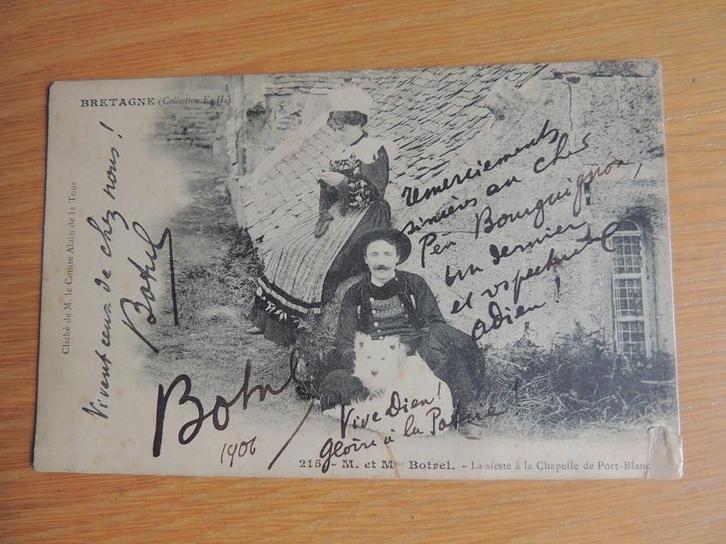 BRETAGNE (Collection E. H.)
Cliché de M. le Comte Alain de la Tour
Vivent ceux de chez nous!
Botrel
remerciements
sincères au cher
Pen Bourguignon,
Un dernier
et respectueux
adieu!
Botrel
1906
Vive Dieu!
gloire à la Patrie!
215 - M. et Mme Botrel. - La sieste à la Chapelle de Port-Blanc